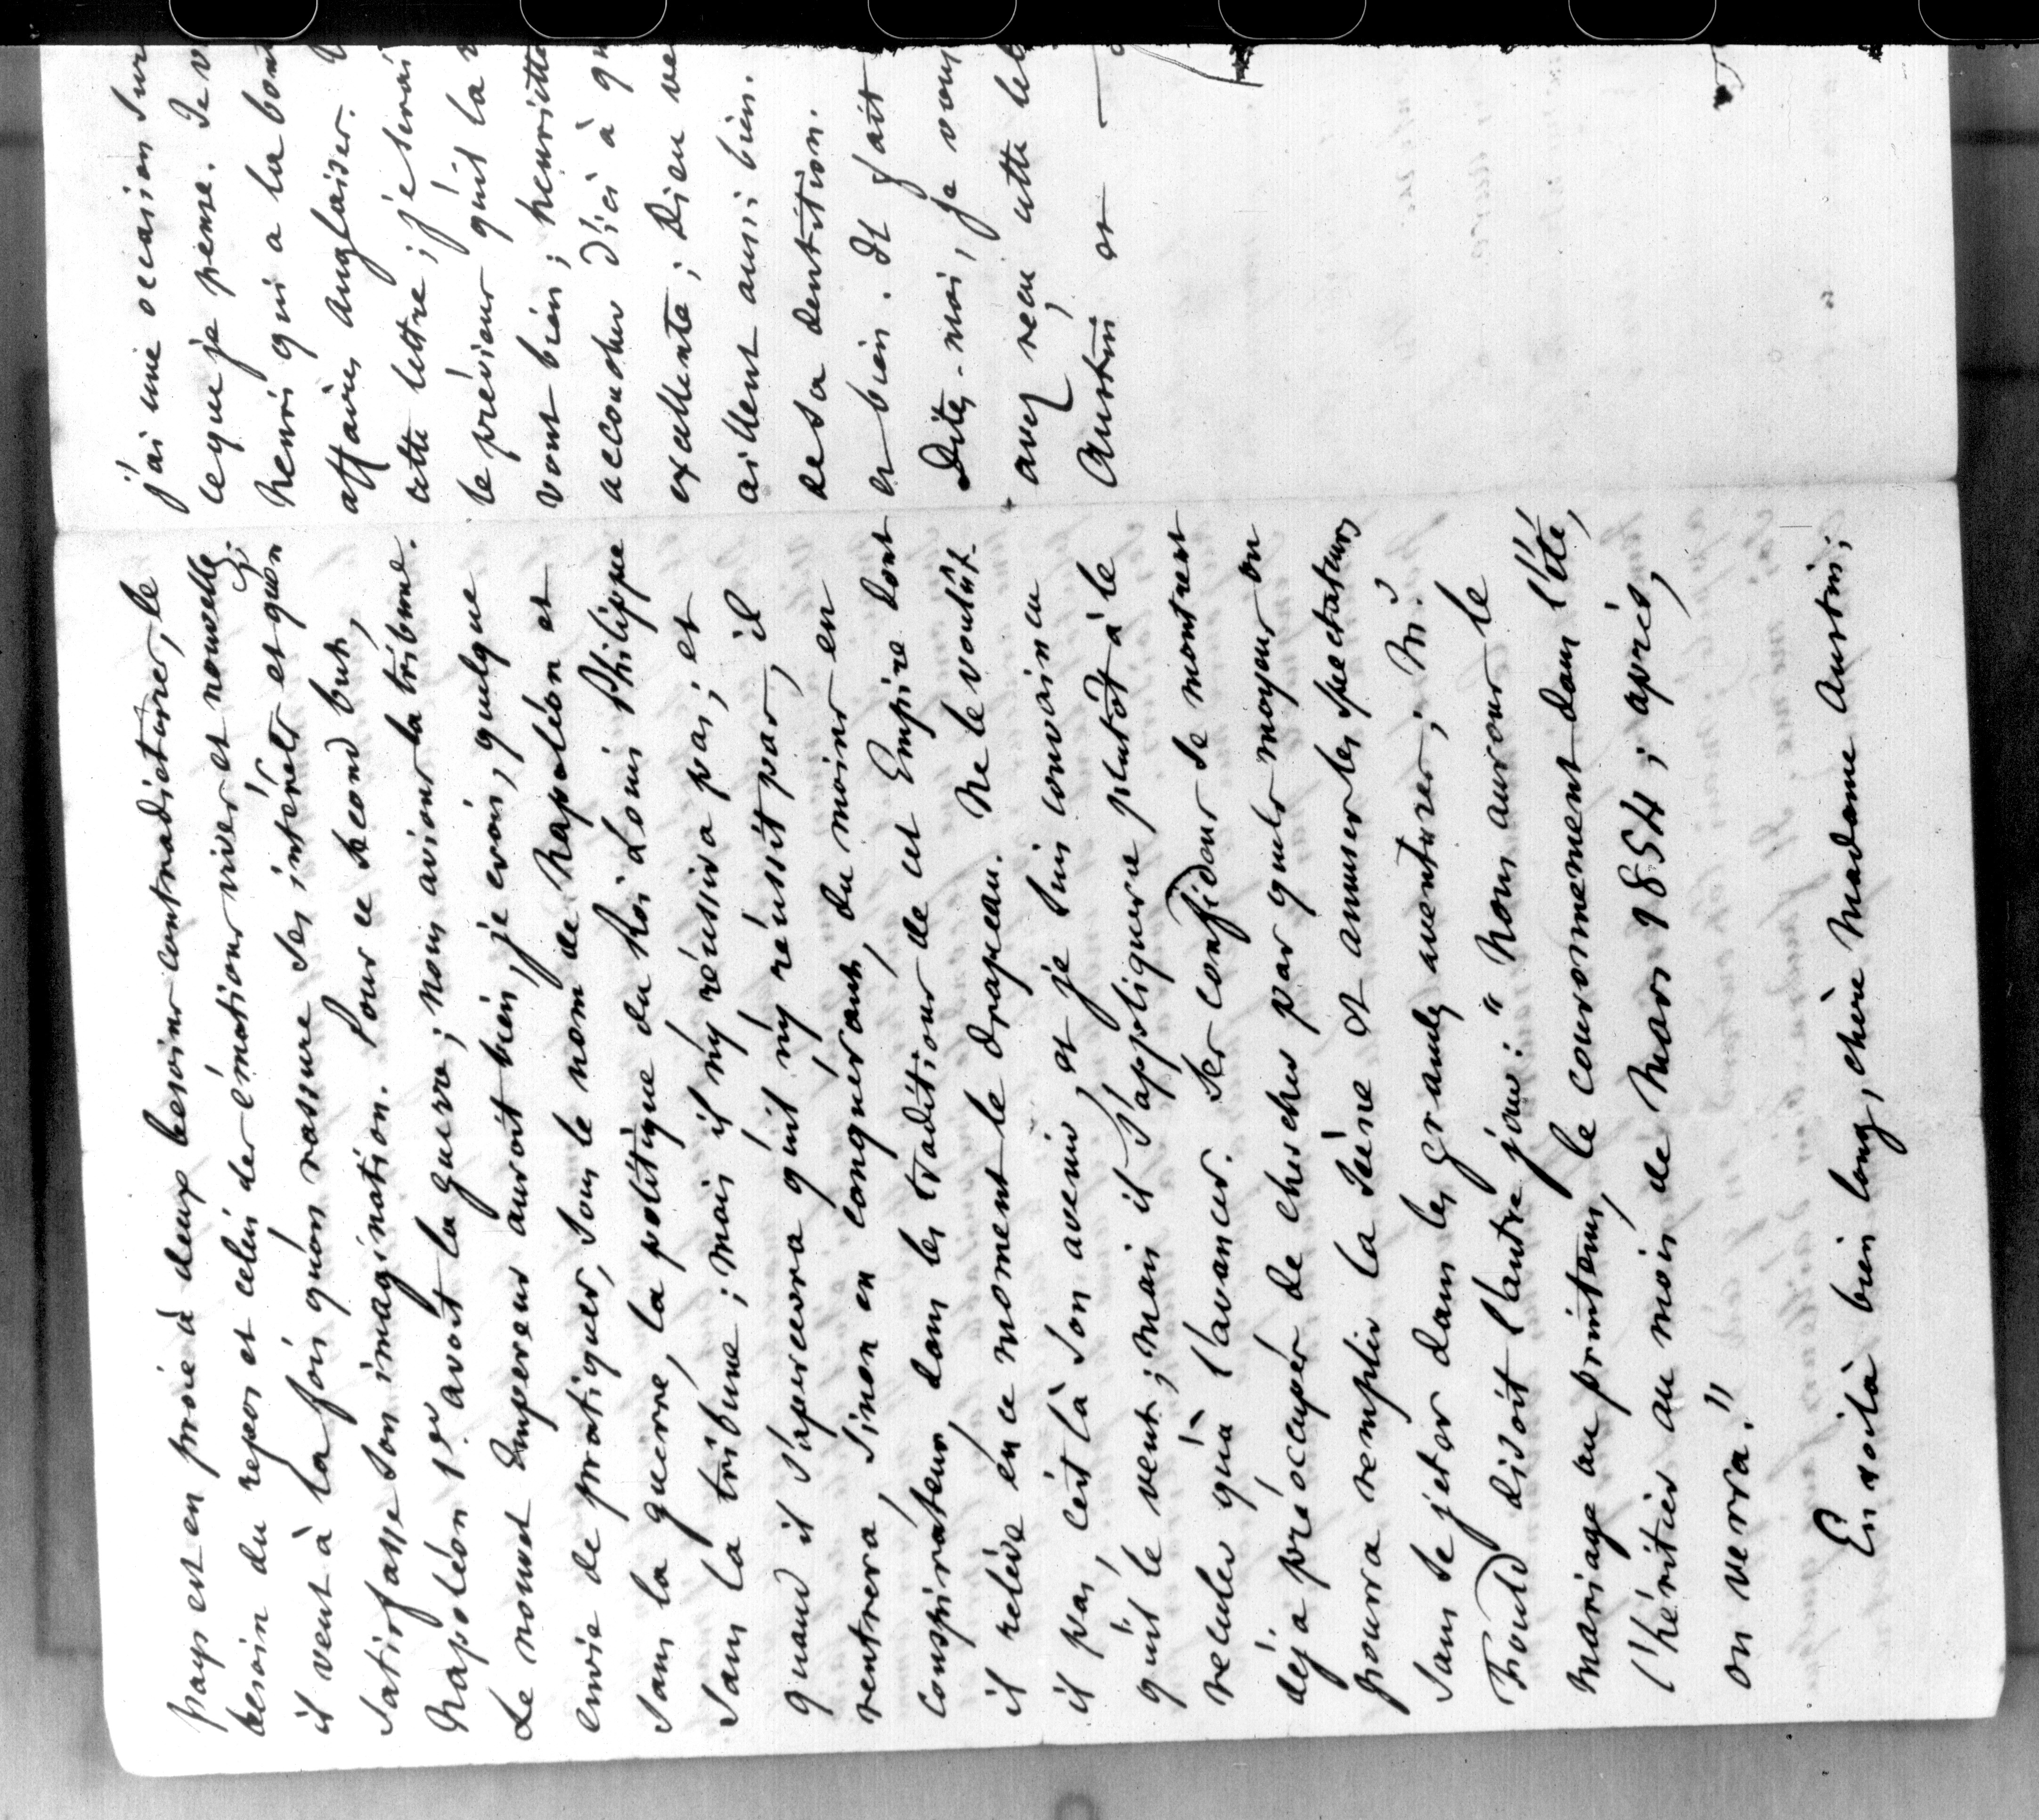 pays est en proie à deux besoins contradictoires, le
besoin du repos et celui des émotions vives et nouvelles;
il veut à la fois qu'on rassure ses intérêts et qu'on
satisfasse son imagination. Pour ce second but,
Napoléon 1er avoit la guerre; nous avions la tribune.
Le nouvel Empereur auroit bien, je crois, quelque
envie de pratiquer, sous le nom de Napoléon et
sans la guerre, la politique du Roi Louis Philippe
sans la tribune; mais il n'y réussira pas; et
quand il s'apercevra qu'il n'y réussit pas, il
rentrera, sinon en conquérant, du moins en
conspirateur, dans les traditions de cet Empire dont
il relève en ce moment le drapeau. Ne le voulût-
il pas, c'est là son avenir, et je suis convaincu
qu'il le veut; mais il s'appliquera plutôt à le
reculer qu'à l'avancer. Ses confidens se montrent
déja préoccupés de chercher par quels moyens on
pourra remplir la scène et amuser les spectateurs
sans se jeter dans les grandes aventures; Mr.
Fould disoit l'autre jour: "Nous aurons le
mariage au printems, le couronnement dans l'été,
l'héritier au mois de Mars 1854; après,
on verra."
En voilà bien long, chère Madame Austin;
j'ai une occasion sur
ce que je pense. Je v
Henri qui a la bont
affaires anglaises.
cette lettre; je serai
le prévieur qu'il la
vont bien; henriette
accoucher d'ici à qu
excellente; Dieu ve
aillent aussi bien.
de sa dentition.
et bien. Il fait
Dites-moi, je vous
avez reçu cette let
Austin et